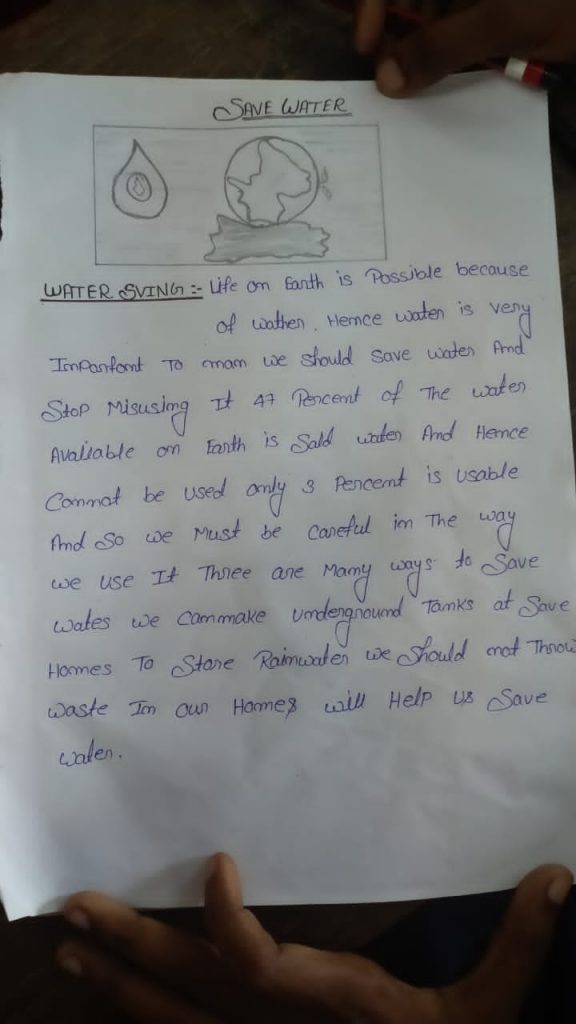 SAVE WATER
WATER SVING :- Life on Earth is Possible because
of wather. Hence water is very
Imparfant To mam we should save water And
Stop Misusing It 47 Percent of The water
Avaliable on Earth is Sald water And Hence
Cannot be used only 3 Percent is usable
And So we Must be Careful im The way
we use It Three are Mamy ways to Save
wates we cammake Umderground Tamks at Save
Homes To Store Raimwater we should not Throw
waste Im our Homes will Help us Save
water.